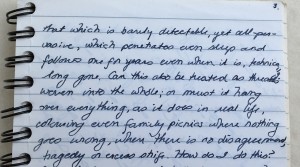 3.
that which is barely detectable, yet all per-
vasive, which penetrates even sleep and
follows one for years even when it is, technically,
long gone. Can this also be treated as threads
woven into the whole; or must it hang
over everything, as it does in real life,
colouring even family picnics where nothing
goes wrong, where there is no disagreement,
tragedy or excess strife. How do I do this?